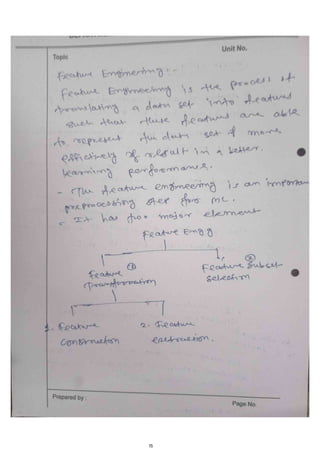 Unit No.
Topic
Feature Engineering :-
Feature Engineering is the process of
translating a data set into features
such that these features are able
to represent the data set & more
effectively & result in a better.
learning performance.
- The feature engineering is an important
preprocessing step for ML.
- It has two major element
Feature Engg
Feature ① Feature Subset ②
Transformation selection
1. Feature 2. Feature
construction extraction.
Prepared by :
Page No.
15